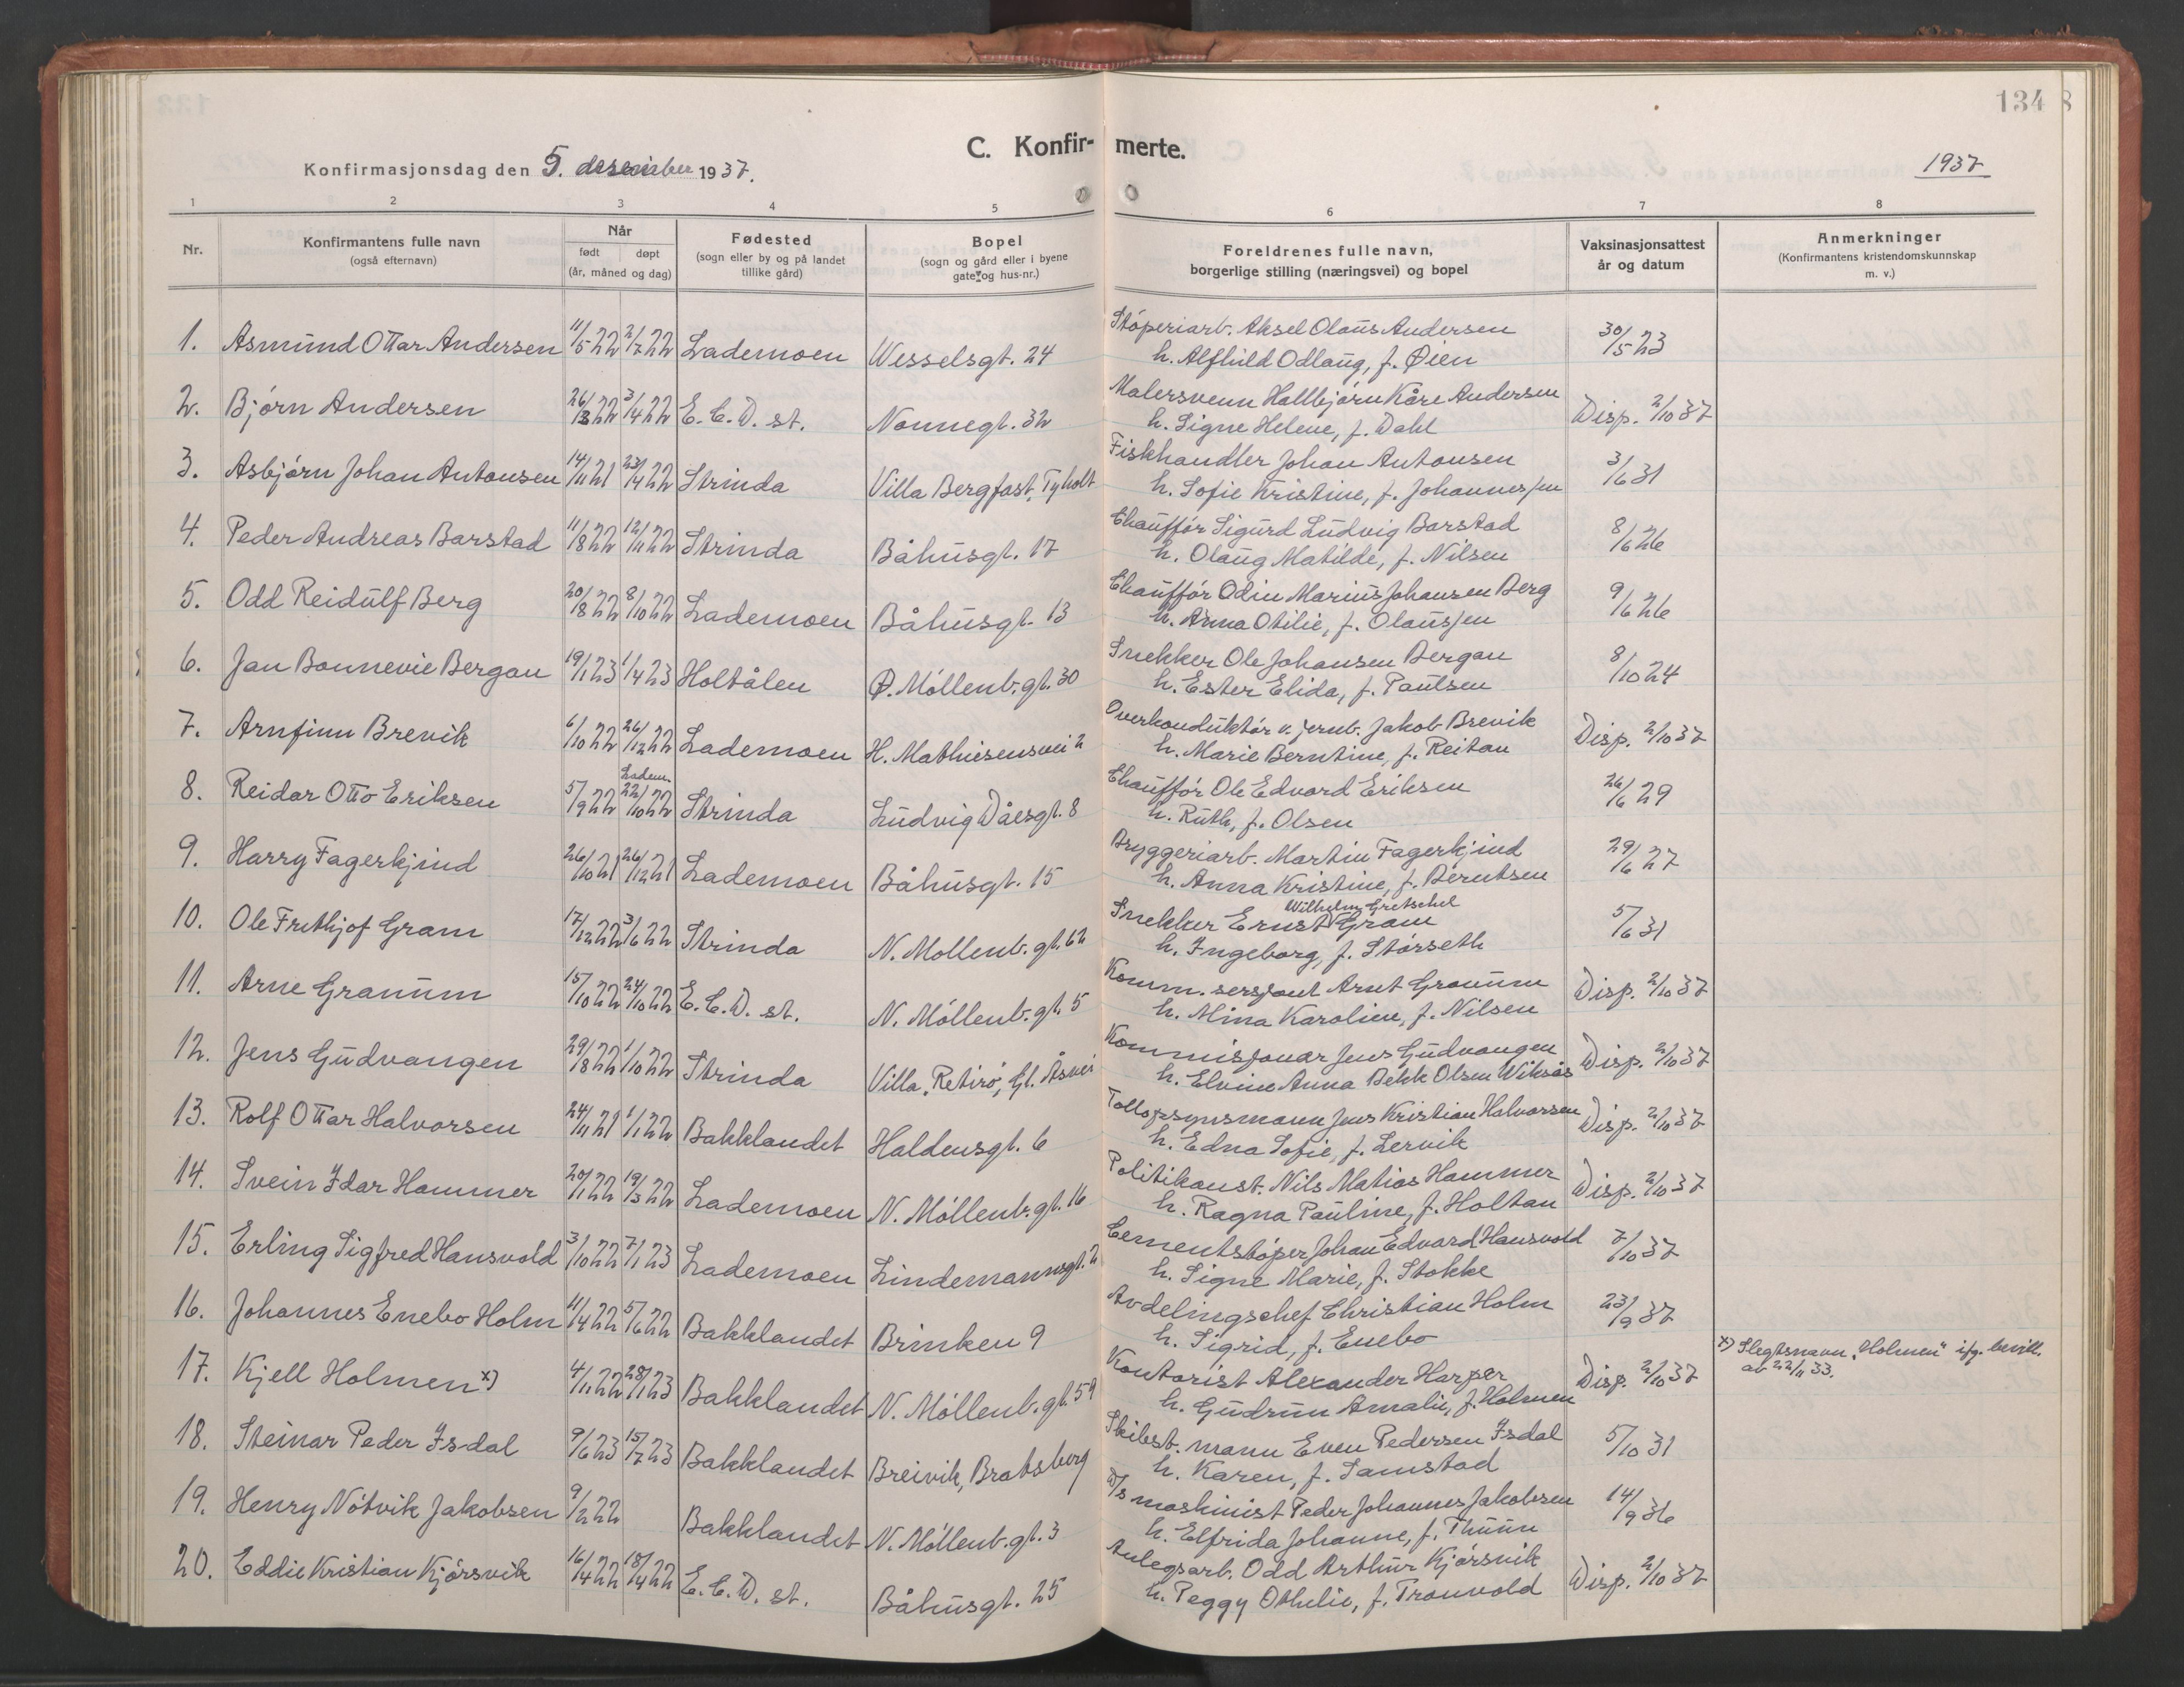 134
C. Konfir- merte.
Konfirmasjonsdag den 5. desember 1937.
1937
1 2 3 4 5 6 7 8
Nr.
Konfirmantens fulle navn
(også efternavn)
Når
født døpt
(år, måned og dag)
Fødested
(sogn eller by og på landet
tillike gård)
Bopel
(sogn og gård eller i byene
gate og hus-nr.)
Foreldrenes fulle navn,
borgerlige stilling (næringsvei) og bopel
Vaksinasjonsattest
år og datum
Anmerkninger
(Konfirmantens kristendomskunnskap
m. v.)
1. Asmund Ottar Andersen 11/5 22 2/7 22 Lademoen Wesselsgt. 24 Støperiarb. Aksel Olaus Andersen 30/5 23
h. Alfhild Odlaug, f. Øien
2. Bjørn Andersen 26/3 22 3/4 22 E. C. D. st. Nonnegt. 32 Malersvenn Hallbjørn Kåre Andersen Disp. 2/10 37
h. Signe Helene, f. Dahl
3. Asbjørn Johan Antonsen 14/11 21 23/4 22 Strinda Villa Bergfast, Tyholt Fiskhandler Johan Antonsen 3/6 31
h. Sofie Kristine, f. Johannessen
4. Peder Andreas Barstad 11/8 22 12/11 22 Strinda Båhusgt. 17 Chauffør Sigurd Ludvig Barstad 8/6 26
h. Olaug Matilde, f. Nilsen
5. Odd Reidulf Berg 20/8 22 8/10 22 Lademoen Båhusgt. 13 Chauffør Odin Marius Johansen Berg 9/6 26
h. Anna Otilie, f. Olaussen
6. Jan Bonnevie Bergan 19/1 23 1/4 23 Holtålen Ø. Møllenb. gt. 30 Snekker Ole Johansen Bergan 8/10 24
h. Ester Elida, f. Paulsen
7. Arnfinn Brevik 6/10 22 26/12 22 Lademoen H. Mathiesensvei 2 Overkonduktør v. jernb. Jakob Brevik Disp. 2/10 37
h. Marie Berntine, f. Reitan
Ladem.
8. Reidar Otto Eriksen 5/9 22 22/10 22 Strinda Ludvig Daesgt. 8 Chauffør Ole Edvard Eriksen 26/6 29
h. Ruth, f. Olsen
9. Harry Fagerkjind 26/10 21 26/12 21 Lademoen Båhusgt. 15 Bryggeriarb. Martin Fagerkjind 29/6 27
h. Anna Kristine, f. Berntsen
Wilhelm Gretschel
10. Ole Frithjof Gram 17/12 22 3/6 22 Strinda N. Møllenb. gt. 62 Snekker Ernst Gram 5/6 31
h. Ingeborg, f. Størseth
11. Arne Granum 15/10 22 24/10 22 E. C. D. st. N. Møllenb. gt. 5 Komm. sersjant Arnt Granum Disp. 2/10 37
h. Alina Karoline, f. Nilsen
12. Jens Gudvangen 29/8 22 1/10 22 Strinda Villa „Retiro", Gl. Åsvei Kommisjonær Jens Gudvangen Disp. 2/10 37
h. Elvine Anna Bekk Olsen Wiksås
13. Rolf Ottar Halvorsen 24/11 21 1/1 22 Bakklandet Haldensgt. 6 Tollopsynsmann Jens Kristian Halvorsen Disp. 2/10 37
h. Edna Sofie, f. Lervik
14. Svein Idar Hammer 20/1 22 19/3 22 Lademoen N. Møllenb. gt. 16 Politikonst. Nils Matias Hammer Disp. 2/10 37
h. Ragna Pauline, f. Holtan
15. Erling Sigfred Hansvold 3/10 22 7/1 23 Lademoen Lindemannsgt. 2 Cementstøper Johan Edvard Hansvold 7/10 37
h. Signe Marie, f. Stokke
16. Johannes Enebo Holm 11/4 22 5/6 22 Bakklandet Brinken 9 Avdelingschef Christian Holm 23/9 37
h. Sigrid, f. Enebo
17. Kjell Holmen x) 4/11 22 28/1 23 Bakklandet N. Møllenb. gt. 59 Kontorist Alexander Harper Disp. 2/10 37 x) Slegtsnavn „Holmen" ifg. bevill.
h. Gudrun Amalie, f. Holmen av 22/11 33.
18. Steinar Peder Isdal 9/6 23 15/7 23 Bakklandet Breivik, Bratsberg Skibst. mann Even Pedersen Isdal 5/10 31
h. Karen, f. Samstad
19. Henry Nøtvik Jakobsen 9/2 22 Bakklandet N. Møllenb. gt. 3 D/s maskinist Peder Johannes Jakobsen 14/9 36
h. Elfrida Johanne, f. Thuun
20. Eddie Kristian Kjørsvik 16/4 22 18/4 22 E. C. D. st. Båhusgt. 25 Anlegsarb. Odd Arthur Kjørsvik Disp. 2/10 37
h. Peggy Othelie, f. Tranvold